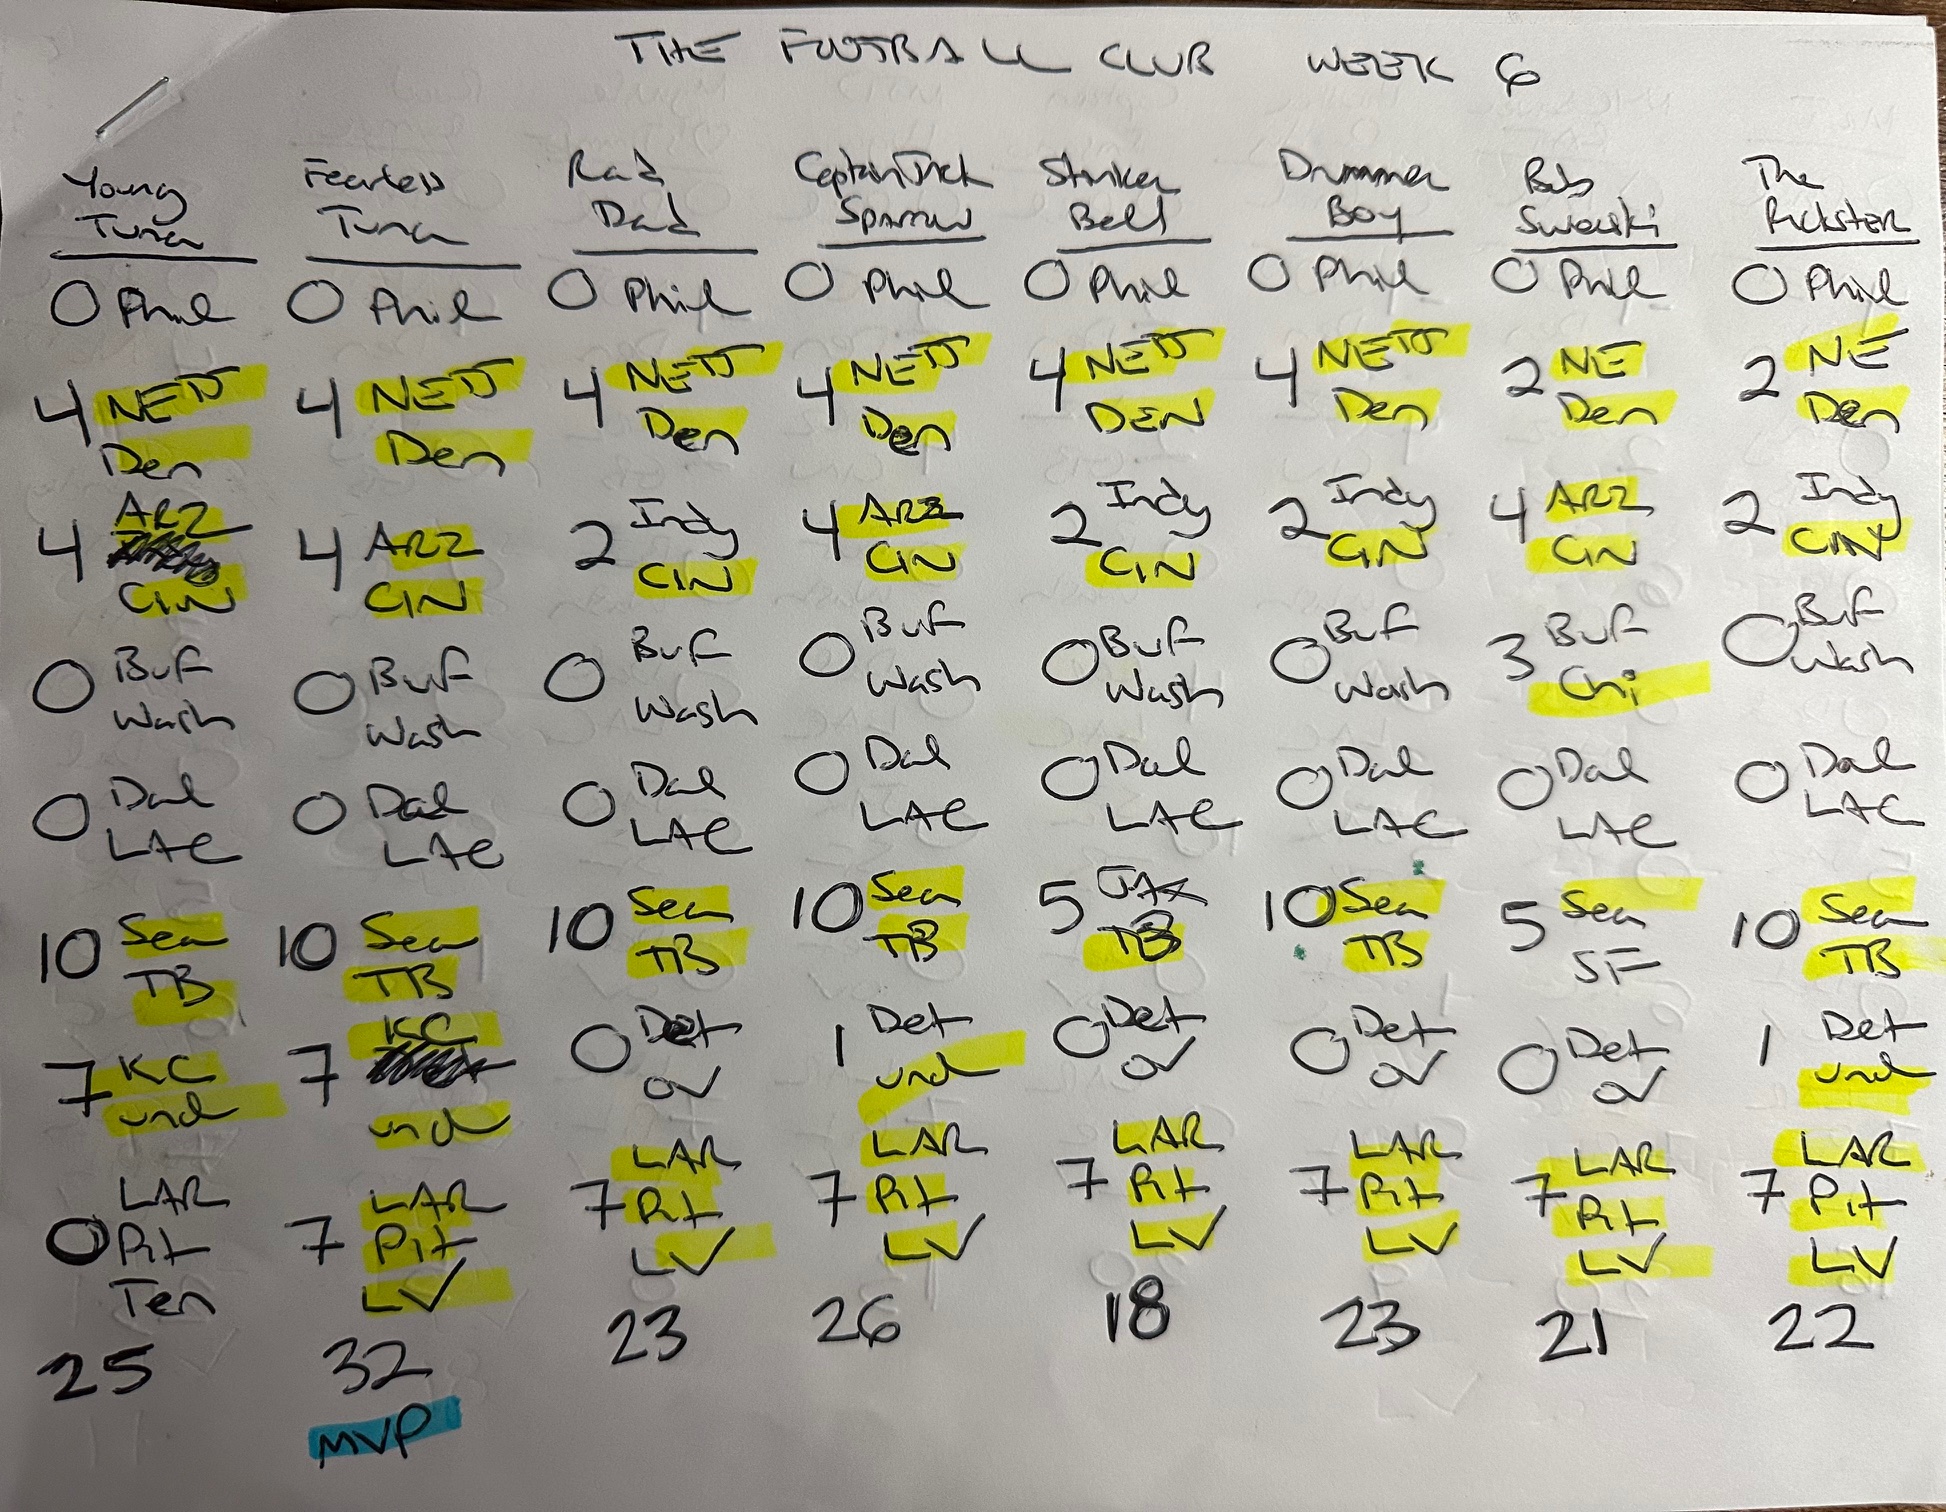 THE FOOTBALL CLUB WEEK 6
Young Fearless Rad Captain Jack Striker Drummer Bob The
Tuna Tuna Dad Sparrow Belt Boy Swerski Pickster
0 Phil 0 Phil 0 Phil 0 Phil 0 Phil 0 Phil 0 Phil 0 Phil
4 NE TJ 4 NE TJ 4 NE TJ 4 NE TJ 4 NE TJ 4 NE TJ 2 NE 2 NE
Den Den Den Den DEN Den Den Den
4 ARZ 4 ARZ 2 Indy 4 ARZ 2 Indy 2 Indy 4 ARZ 2 Indy
CIN CIN CIN CIN CIN CIN CIN CIN
0 Buf 0 Buf 0 Buf 0 Buf 0 Buf 0 Buf 3 Buf 0 Buf
Wash Wash Wash Wash Wash Wash Chi Wash
0 Dal 0 Dal 0 Dal 0 Dal 0 Dal 0 Dal 0 Dal 0 Dal
LAC LAC LAC LAC LAC LAC LAC LAC
10 Sea 10 Sea 10 Sea 10 Sea 5 JAX 10 Sea 5 Sea 10 Sea
TB TB TB TB TB TB SF TB
7 KC 7 KC 0 Det 1 Det 0 Det 0 Det 0 Det 1 Det
und und ov und ov ov ov und
LAR LAR LAR LAR LAR LAR LAR LAR
0 Pit 7 Pit 7 Pit 7 Pit 7 Pit 7 Pit 7 Pit 7 Pit
Ten LV LV LV LV LV LV LV
25 32 23 26 18 23 21 22
MVP